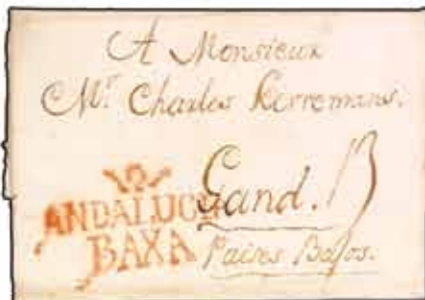 A Monsieur
Mr. Charles Kerremans.
Gand. 13
ANDALUCIA
BAXA
Paises Baxos.